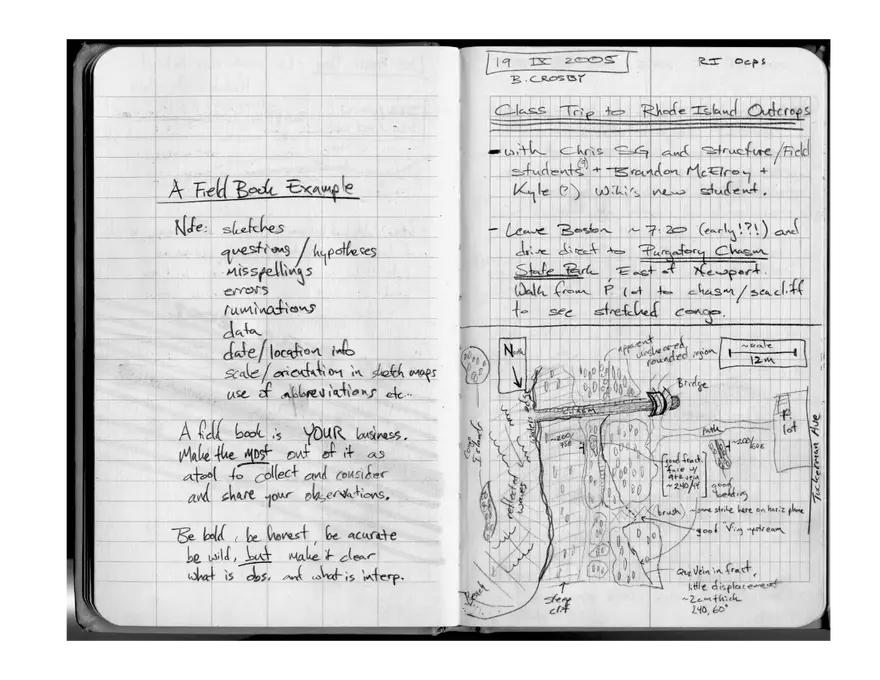 A Field Book Example
Note: sketches
questions / hypotheses
misspellings
errors
ruminations
data
date/location info
scale/orientation in sketch maps
use of abbreviations etc...
A field book is YOUR business.
Make the most out of it as
a tool to collect and consider
and share your observations.
Be bold, be honest, be acurate
be wild, but make it clear
what is obs. and what is interp.
19 IX 2005
RI Ocps
B. CROSBY
Class Trip to Rhode Island Outcrops
- with Chris SG and Structure/Field
students + Brandon McElroy +
Kyle (?) Wiki's new student.
- Leave Boston ~ 7:20 (early!?!) and
drive direct to Purgatory Chasm
State Park, East of Newport.
Walk from P lot to chasm/seacliff
to see stretched congo.
North
apparent
unsheared
rounded region
~scale
12m
Bridge
Path
P.
lot
Tuckerman Ave
Islands
reflected waves
~200/
~200/
good
bedding
brush
~ same strike here on horiz plane
good V'ing upstream
Qtz Vein in fract,
little displacement
~2cm thick
240, 60°
Beach
steep